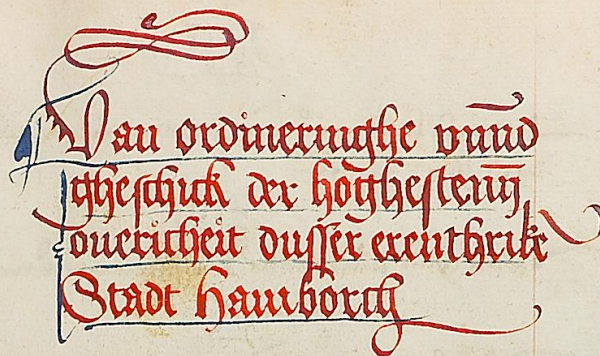 Van ordineringhe vnnd
gheschick der hoghesten
ouericheit dusser erenthrike
Stadt Hamborch